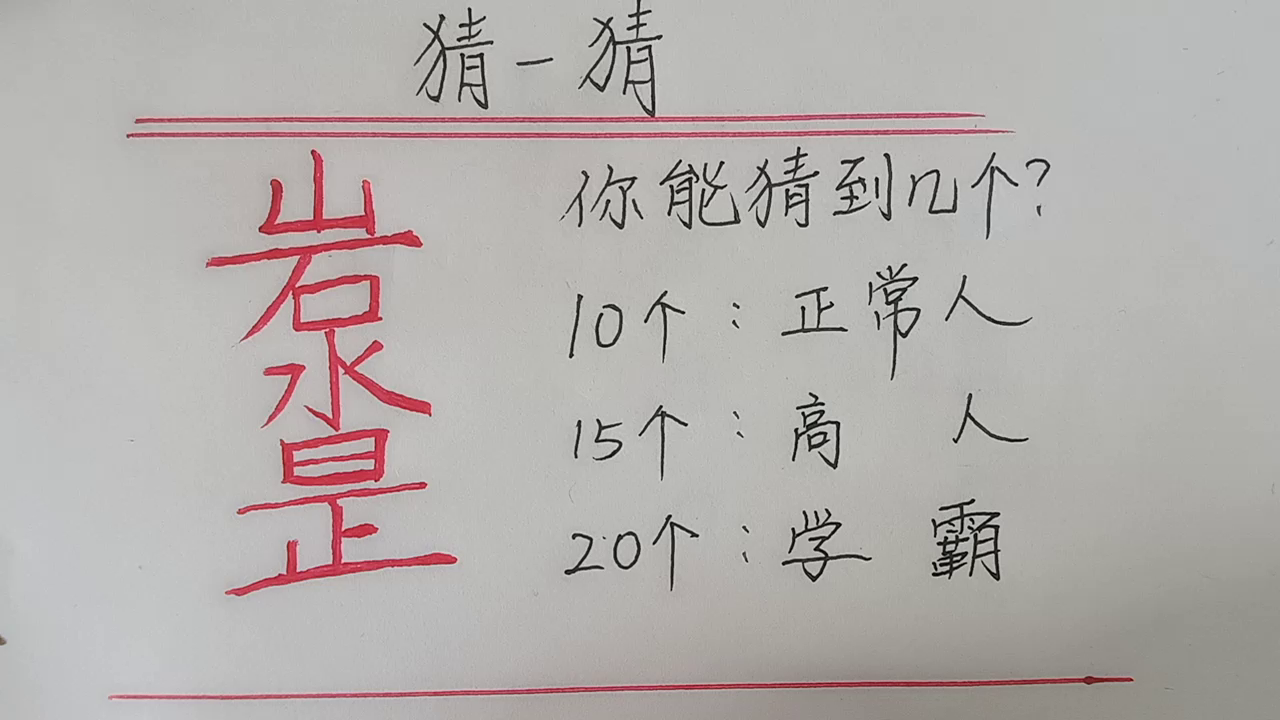 猜一猜
岩
水
昰
你能猜到几个?
10个:正常人
15个:高人
20个:学霸